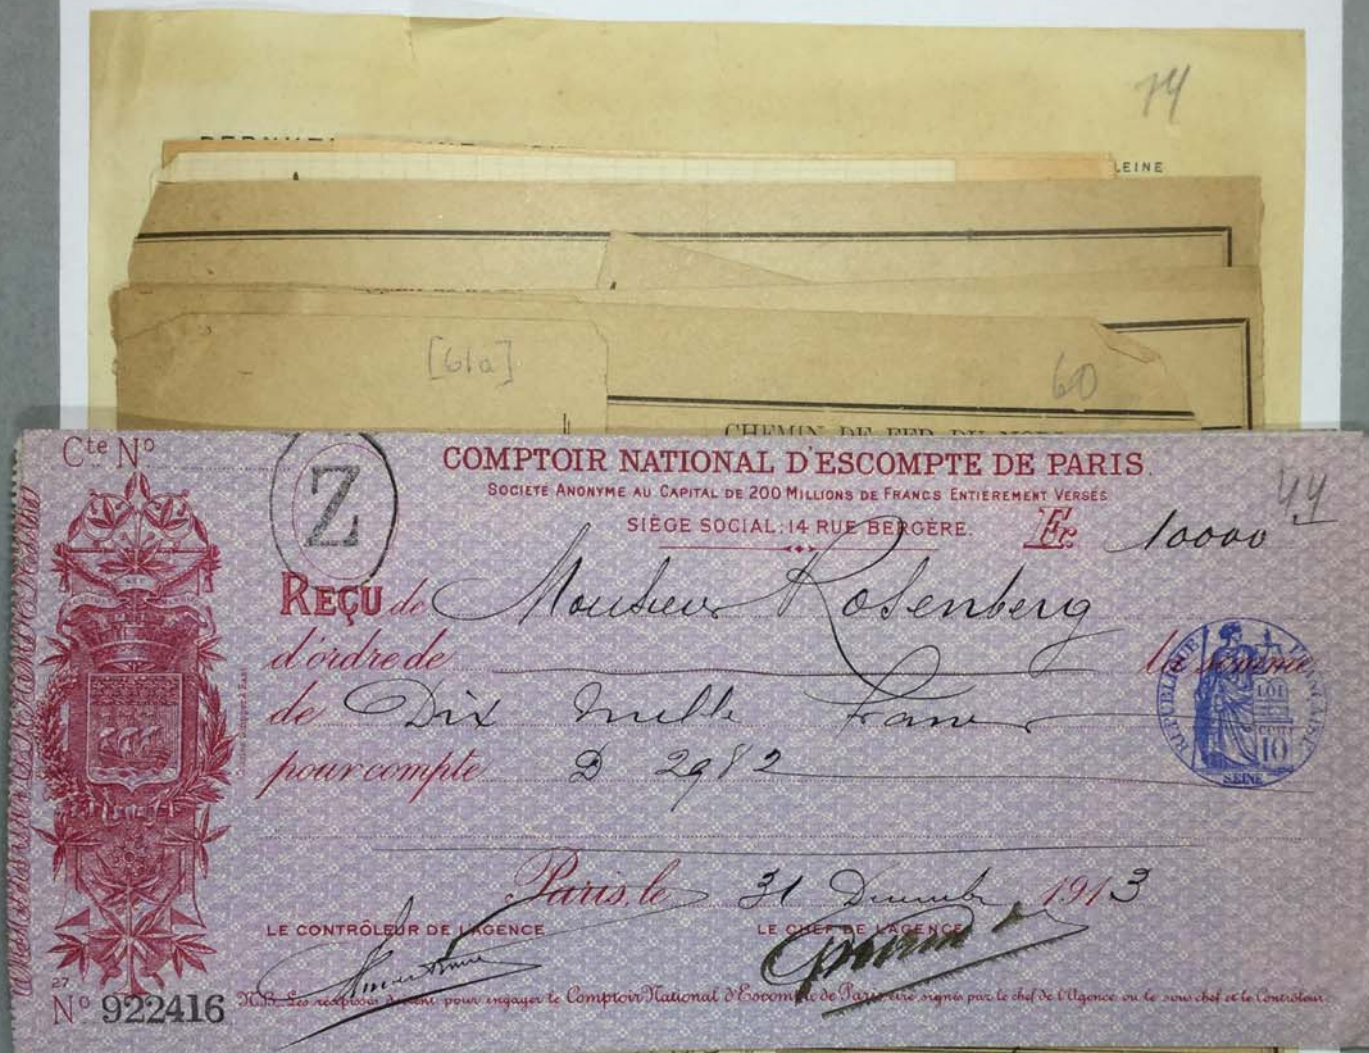 74
LEINE
[61a]
60
CHEMIN DE FER DU NORD
Cte No
Z
COMPTOIR NATIONAL D'ESCOMPTE DE PARIS.
SOCIÉTÉ ANONYME AU CAPITAL DE 200 MILLIONS DE FRANCS ENTIÈREMENT VERSÉS
44
SIÈGE SOCIAL: 14 RUE BERGÈRE.
Fr. 10000
REÇU de Monsieur Rosenberg
d'ordre de la somme
de Dix mille Francs
pour compte D 2982
RÉPUBLIQUE FRANÇAISE
LOI
10
SEINE
Paris, le 31 Decembre 1913
LE CONTRÔLEUR DE L'AGENCE
LE CHEF DE L'AGENCE
27
No 922416
N.B. Les récépissés doivent pour engager le Comptoir National d'Escompte de Paris être signés par le chef de l'Agence ou le sous chef et le Contrôleur.